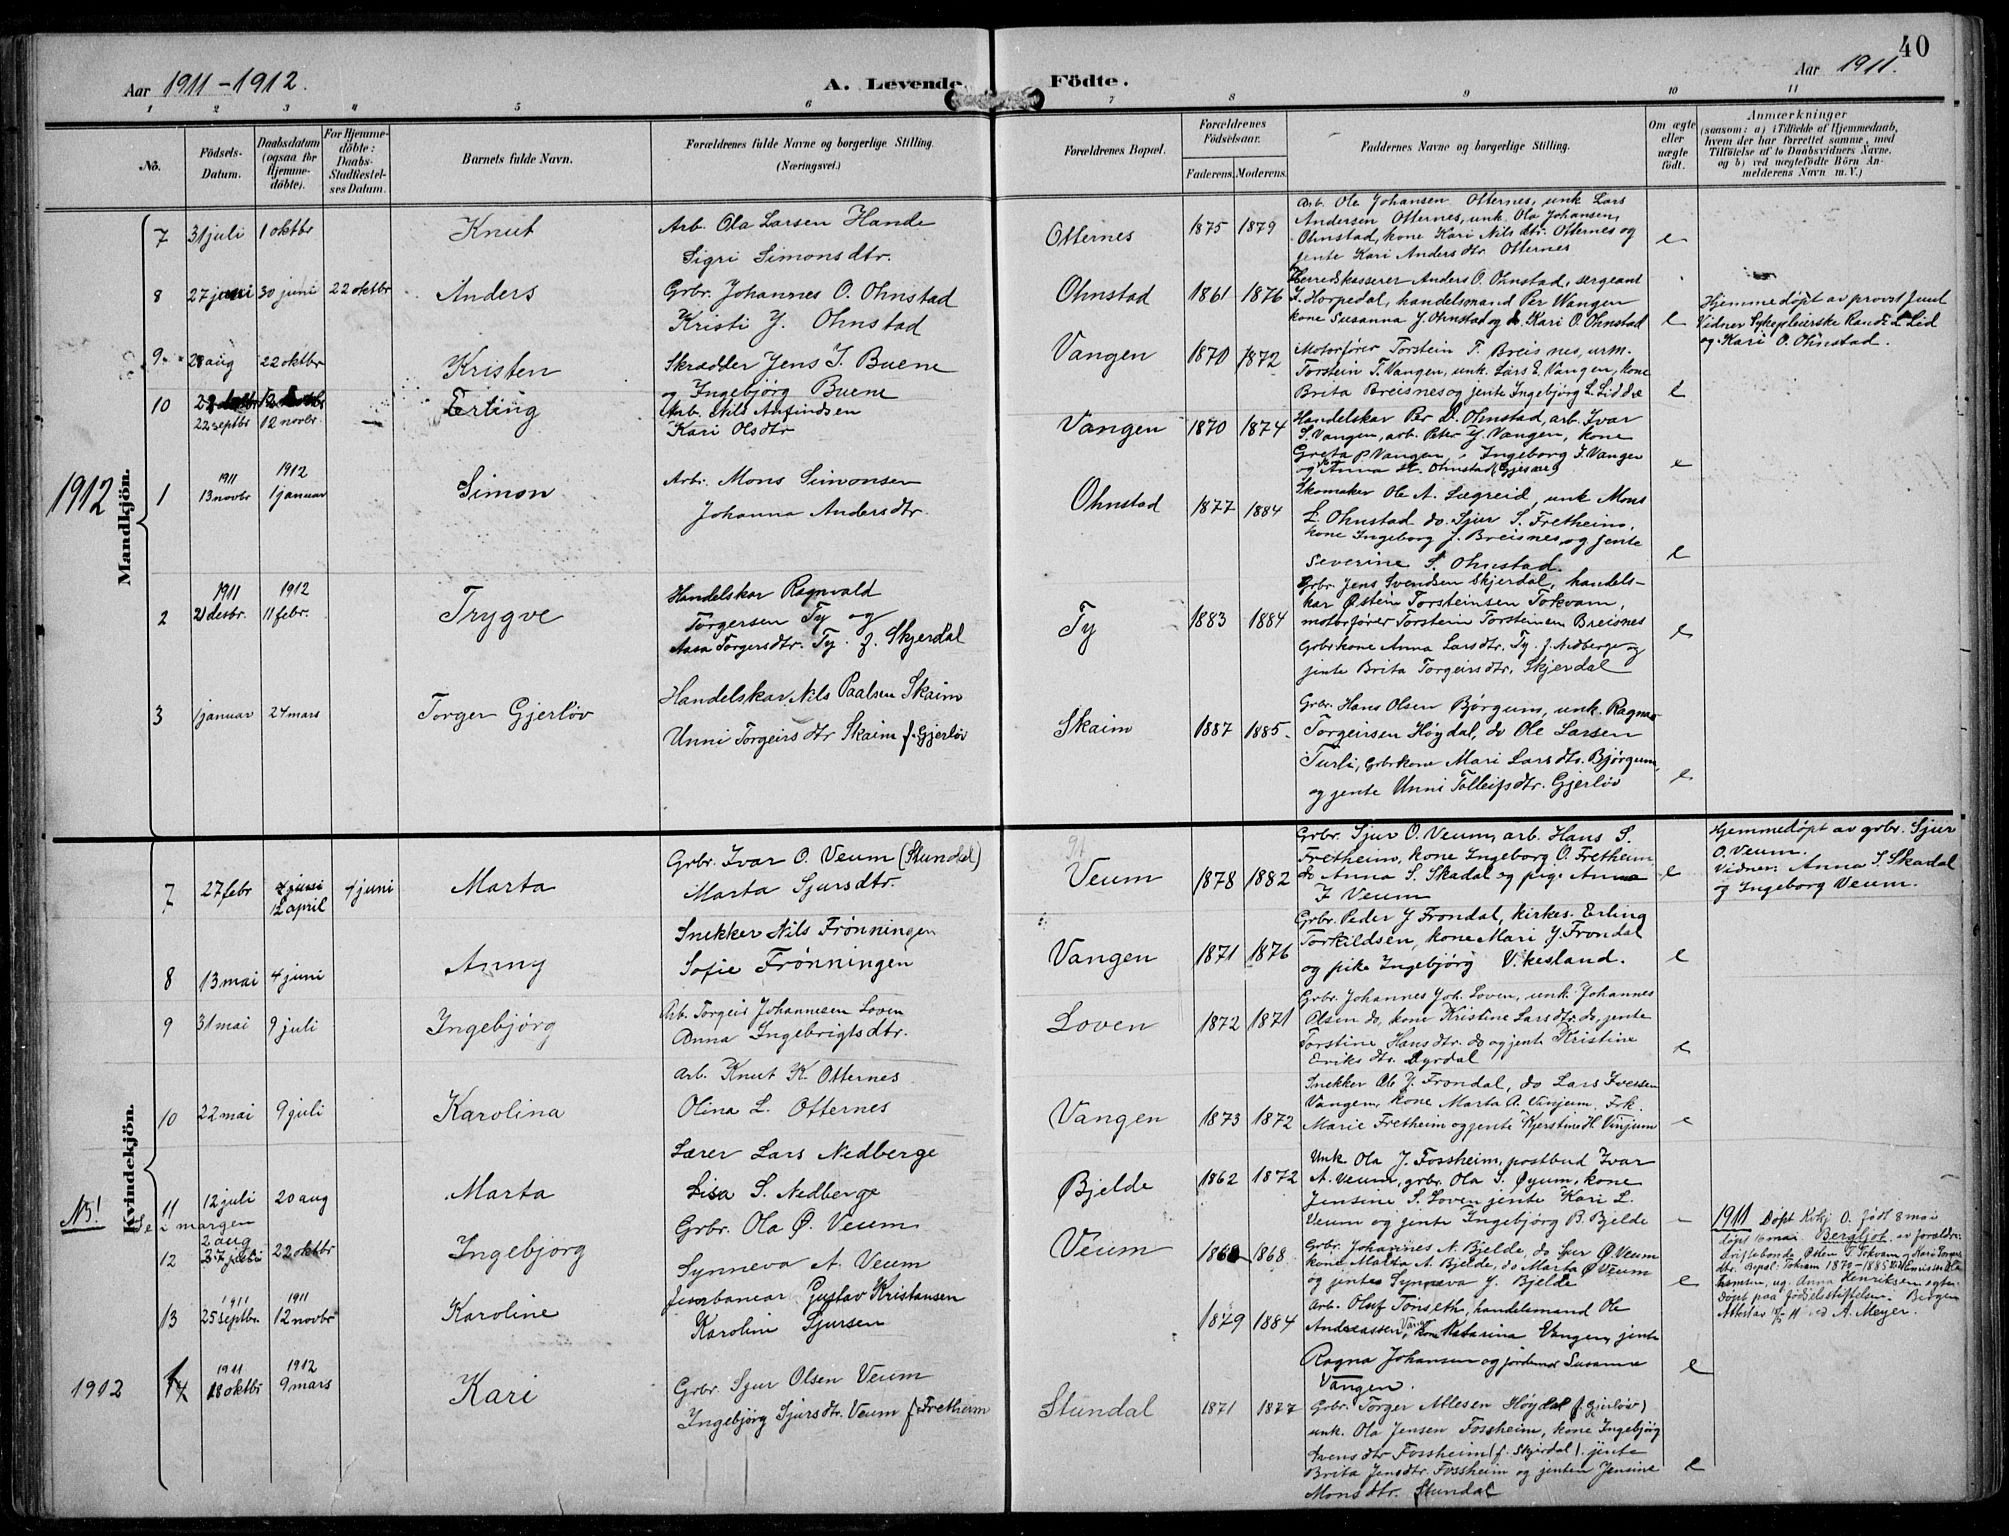 40
Aar 1911-1912.
A. Levende Födte.
Aar 1911.
1 2 3 4 5 6 7 8 9 10 11
No.
Födsels-Datum.
Daabsdatum (ogsaa för Hjemme-döbte).
For Hjemme-döbte: Daabs-Stadfæstel-ses Datum.
Barnets fulde Navn.
Forældrenes fulde Navne og borgerlige Stilling. (Næringsvei.)
Forældrenes Bopæl.
Forældrenes Födselsaar.
Faderens. Moderens.
Faddernes Navne og borgerlige Stilling.
Om ægte eller uægte födt.
Anmærkninger
(saasom: a) i Tilfælde af Hjemmedaab,
hvem der har forrettet samme, med
Tilföielse af to Daabsvidners Navne,
og b) ved uægtefödte Börn An-
melderens Navn m. V.)
Mandkjön.
7 31 juli 1 oktbr Knut
Arb. Ola Larsen Hande
Sigri Simonsdtr.
Otternes 1875 1879
Arb. Ole Johansen Otternes, unk Lars
Andersen Otternes, unk. Ola Johansen,
Ohnstad, kone Kari Nilsdtr. Otternes og
jente Kari Andersdtr. Otternes
e
8 27 juni 30 juni 22 oktbr Anders
Grbr. Johannes O. Ohnstad
Kristi J. Ohnstad
Ohnstad 1861 1876
Herredskasserer Anders O. Ohnstad, sergeant
J. Horpedal, handelsmand Per Vangen
kone Susanna J. Ohnstad og Kari O. Ohnstad
e
Hjemmedøpt av provst Juul
Vidner Sykepleierske Randi L Lid
og Kari O. Ohnstad.
9 28 aug 22 oktbr Kristen
Skrædder Jens J. Buene
og Ingebjörg Buene
Vangen 1870 1872
Motorfører Torstein T. Breisnes, urm.
Torstein T. Vangen, unk. Lars E. Vangen, kone
Brita Breisnes og jente Ingebjörg L. Lid
e
10 22 septbr 12 novbr. Erling
Arb. Nils Anfindsen
Kari Olsdtr
Vangen 1870 1874
Handelskar Per D. Ohnstad, arb. Ivar
S. Vangen, arb. Peter J. Vangen, kone
Greta P Vangen, Ingeborg J. Vangen
og Anna H. Ohnstad
e
1912
1 1911 13 novbr 1912 1 januar Simon
Arb. Mons Simonsen
Johanna Andersdtr.
Ohnstad 1877 1884
Skomaker Ole A. Lægreid, unk Mons
L. Ohnstad do. Sjur S. Fretheim,
kone Ingeborg J. Breisnes og jente
Severine S. Ohnstad.
e
2 1911 21 desbr. 1912 11 febr. Trygve
Handelskar Ragnvald
Torgersen Ty og
Aasa Torgersdtr. Ty. f. Skjerdal
Ty 1883 1884
Grbr. Jens Svendsen Skjerdal, handels-
kar Østein Torsteinsen Tokvam,
motorfører Torstein Torsteinsen Breisnes
Grbrkone Anna Larsdtr. Ty. f. Nedberge og
jente Brita Torgeirsdtr. Skjerdal
e
3 1 januar 24 mars Torger Gjerløv
Handelskar Nils Paalsen Skaim
Unni Torgeirsdtr Skaim f. Gjerløv
Skaim 1887 1885
Grbr. Hans Olsen Bjørgum, unk. Ragnar
Torgeirsen Høydal, do Ole Larsen
Turli, Grbrkone Mari Larsdtr. Bjørgum,
og jente Unni Tolleifsdtr. Gjerløv
e
Kvindekjön.
7 27 febr 4 juni 12 april 4 juni Marta
Grbr. Ivar O. Veum (Stundal)
Marta Sjursdtr.
Veum 1878 1882
Grbr. Sjur O. Veum, arb. Hans S.
Fretheim, kone Ingeborg O. Fretheim
do Anna S. Skadal og pige Anna
J Veum
e
Hjemmedøpt av grbr. Sjur
O. Veum.
Vidner: Anna S. Skadal
og Ingeborg Veum.
8 13 mai 4 juni Anny
Snekker Nils Frønningen
Sofie Frønningen
Vangen 1871 1876
Grbr. Peder J Frondal, kirkes. Erling
Torkildsen, kone Mari J. Frondal
og pike Ingebjörg Vikesland.
e
9 31 mai 9 juli Ingebjörg
Arb. Torgeir Johannesen Loven
Anna Ingebrigtsdtr.
Loven 1872 1871
Grbr. Johannes Joh. Loven, unk. Johannes
Olsen do, kone Kristine Larsdtr. do, jente
Torstine Hansdtr. do og jente Kristine
Eriksdtr. Dyrdal
e
10 22 mai 9 juli Karolina
Arb. Knut K. Otternes
Olina L. Otternes
Vangen 1873 1872
Snekker Ole J. Frondal, do Lars Ivessen
Vangen, kone Marta A. Vinjum, Frk.
Marie Fretheim og jente Kjerstine H. Vinjum
e
N3!
Se i margen
11 12 juli 20 aug Marta
Lærer Lars Nedberge
Lisa S. Nedberge
Bjelde 1862 1872
Unk Ola J. Fossheim, postbud Ivar
A. Veum, grbr. Ola S. Øyum, kone
Jensine S. Loven jente Kari L.
Veum og jente Ingebjörg B. Bjelde
12 2 aug 27 juli 22 oktbr Ingebjorg
Grbr. Ola Ø. Veum
Synneva A. Veum
Veum 1868
Grbr. Johannes N. Bjelde, do Sjur Ø Veum
kone Malta A. Bjelde, do Marta Ø Veum
og jente Synneva J. Bjelde
e
1911 Døpt Kvkj O. født 8 mai
døpt 16 mai Bergljot av forældre
Driftsbonde Østen T. Tokvam og Kari Torgers
dtr. Bopæl: Tokvam 1879-1885
ug. Anna Henriksen
Døpt paa fødselsstiftelsen i Bergen
Attestas A. Meyer.
13 1911 25 septbr. 1911 12 novbr Karoline
Jernbanear Gustav Kristansen
Karolini Sjursen
1879 1884
Arb. Oluf Tönseth, handelsmand Ole
Andreassen Vangen, kone Katarina Vangen, jente
Ragna Johansen og jordemor Susanna
Vangen.
e
1912
1 1911 18 oktbr 1912 9 mars Kari
Grbr. Sjur Olsen Veum
Ingebjörg Sjursdtr. Veum f. Fretheim
Stundal 1871 1877
Grbr. Torger Atlesen Høydal (f. Gjerløv)
unk. Ola Jensen Fossheim, kone Ingebjörg
Ivensdtr Fossheim (f. Skjerdal). jente
Brita Jensdtr. Fossheim og jenten Jensine
Monsdtr. Stundal
e